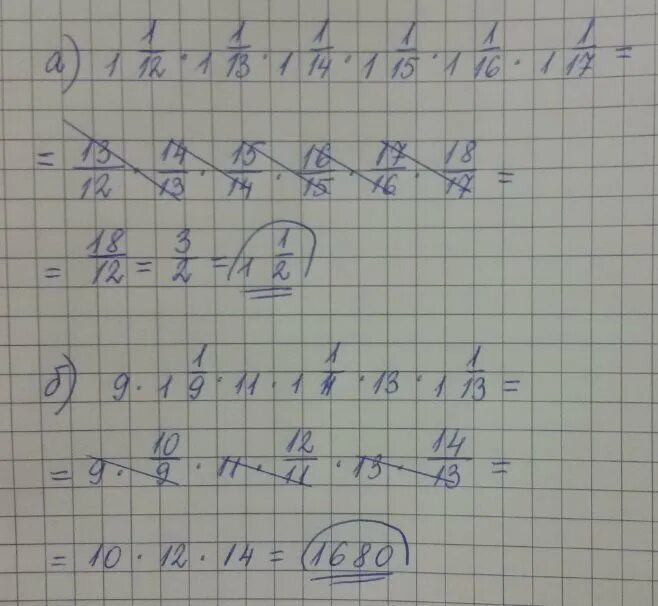 а) 1 1/12 · 1 1/13 · 1 1/14 · 1 1/15 · 1 1/16 · 1 1/17 =
= 13/12 · 14/13 · 15/14 · 16/15 · 17/16 · 18/17 =
= 18/12 = 3/2 = 1 1/2
б) 9 · 1 1/9 · 11 · 1 1/11 · 13 · 1 1/13 =
= 9 · 10/9 · 11 · 12/11 · 13 · 14/13 =
= 10 · 12 · 14 = 1680